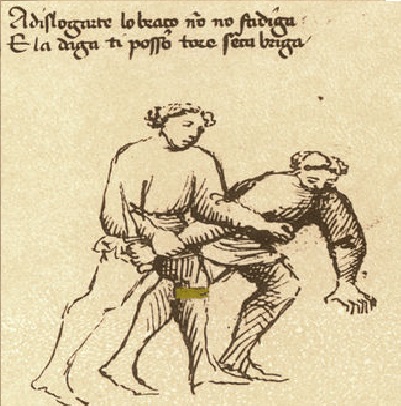 A dislogarte lo braço nõ no fadiga
E la daga ti possõ tore sẽça briga